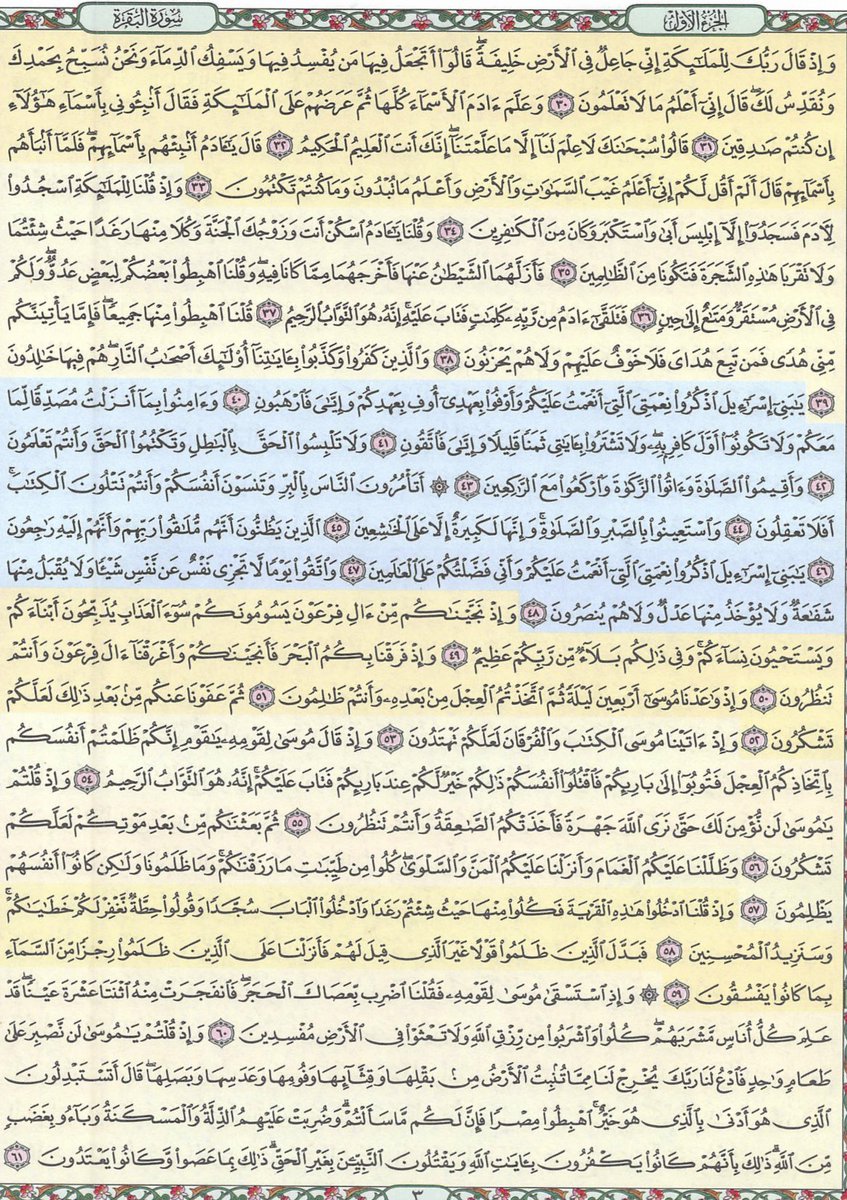 سُورَةُ البَقَرَة
الجُزءُ الأوَّل
وَإِذْ قَالَ رَبُّكَ لِلْمَلَٰٓئِكَةِ إِنِّي جَاعِلٌ فِي الْأَرْضِ خَلِيفَةً ۖ قَالُوٓا۟ أَتَجْعَلُ فِيهَا مَن يُفْسِدُ فِيهَا وَيَسْفِكُ الدِّمَآءَ وَنَحْنُ نُسَبِّحُ بِحَمْدِكَ
وَنُقَدِّسُ لَكَ ۖ قَالَ إِنِّيٓ أَعْلَمُ مَا لَا تَعْلَمُونَ ٣٠ وَعَلَّمَ ءَادَمَ الْأَسْمَآءَ كُلَّهَا ثُمَّ عَرَضَهُمْ عَلَى الْمَلَٰٓئِكَةِ فَقَالَ أَنۢبِـُٔونِي بِأَسْمَآءِ هَٰٓؤُلَآءِ
إِن كُنتُمْ صَٰدِقِينَ ٣١ قَالُوا۟ سُبْحَٰنَكَ لَا عِلْمَ لَنَآ إِلَّا مَا عَلَّمْتَنَآ ۖ إِنَّكَ أَنتَ الْعَلِيمُ الْحَكِيمُ ٣٢ قَالَ يَٰٓـَٔادَمُ أَنۢبِئْهُم بِأَسْمَآئِهِمْ ۖ فَلَمَّآ أَنۢبَأَهُم
بِأَسْمَآئِهِمْ قَالَ أَلَمْ أَقُل لَّكُمْ إِنِّيٓ أَعْلَمُ غَيْبَ السَّمَٰوَٰتِ وَالْأَرْضِ وَأَعْلَمُ مَا تُبْدُونَ وَمَا كُنتُمْ تَكْتُمُونَ ٣٣ وَإِذْ قُلْنَا لِلْمَلَٰٓئِكَةِ اسْجُدُوا۟
لِـَٔادَمَ فَسَجَدُوٓا۟ إِلَّآ إِبْلِيسَ أَبَىٰ وَاسْتَكْبَرَ وَكَانَ مِنَ الْكَٰفِرِينَ ٣٤ وَقُلْنَا يَٰٓـَٔادَمُ اسْكُنْ أَنتَ وَزَوْجُكَ الْجَنَّةَ وَكُلَا مِنْهَا رَغَدًا حَيْثُ شِئْتُمَا
وَلَا تَقْرَبَا هَٰذِهِ الشَّجَرَةَ فَتَكُونَا مِنَ الظَّٰلِمِينَ ٣٥ فَأَزَلَّهُمَا الشَّيْطَٰنُ عَنْهَا فَأَخْرَجَهُمَا مِمَّا كَانَا فِيهِ ۖ وَقُلْنَا اهْبِطُوا۟ بَعْضُكُمْ لِبَعْضٍ عَدُوٌّ ۖ وَلَكُمْ
فِي الْأَرْضِ مُسْتَقَرٌّ وَمَتَٰعٌ إِلَىٰ حِينٍ ٣٦ فَتَلَقَّىٰٓ ءَادَمُ مِن رَّبِّهِۦ كَلِمَٰتٍ فَتَابَ عَلَيْهِ ۚ إِنَّهُۥ هُوَ التَّوَّابُ الرَّحِيمُ ٣٧ قُلْنَا اهْبِطُوا۟ مِنْهَا جَمِيعًا ۖ فَإِمَّا يَأْتِيَنَّكُم
مِّنِّي هُدًى فَمَن تَبِعَ هُدَايَ فَلَا خَوْفٌ عَلَيْهِمْ وَلَا هُمْ يَحْزَنُونَ ٣٨ وَالَّذِينَ كَفَرُوا۟ وَكَذَّبُوا۟ بِـَٔايَٰتِنَآ أُو۟لَٰٓئِكَ أَصْحَٰبُ النَّارِ ۖ هُمْ فِيهَا خَٰلِدُونَ
٣٩ يَٰبَنِيٓ إِسْرَٰٓءِيلَ اذْكُرُوا۟ نِعْمَتِيَ الَّتِيٓ أَنْعَمْتُ عَلَيْكُمْ وَأَوْفُوا۟ بِعَهْدِيٓ أُوفِ بِعَهْدِكُمْ وَإِيَّٰيَ فَارْهَبُونِ ٤٠ وَءَامِنُوا۟ بِمَآ أَنزَلْتُ مُصَدِّقًا لِّمَا
مَعَكُمْ وَلَا تَكُونُوٓا۟ أَوَّلَ كَافِرٍۭ بِهِۦ ۖ وَلَا تَشْتَرُوا۟ بِـَٔايَٰتِي ثَمَنًا قَلِيلًا وَإِيَّٰيَ فَاتَّقُونِ ٤١ وَلَا تَلْبِسُوا۟ الْحَقَّ بِالْبَٰطِلِ وَتَكْتُمُوا۟ الْحَقَّ وَأَنتُمْ تَعْلَمُونَ
٤٢ وَأَقِيمُوا۟ الصَّلَوٰةَ وَءَاتُوا۟ الزَّكَوٰةَ وَارْكَعُوا۟ مَعَ الرَّٰكِعِينَ ٤٣ ۞ أَتَأْمُرُونَ النَّاسَ بِالْبِرِّ وَتَنسَوْنَ أَنفُسَكُمْ وَأَنتُمْ تَتْلُونَ الْكِتَٰبَ ۚ
أَفَلَا تَعْقِلُونَ ٤٤ وَاسْتَعِينُوا۟ بِالصَّبْرِ وَالصَّلَوٰةِ ۚ وَإِنَّهَا لَكَبِيرَةٌ إِلَّا عَلَى الْخَٰشِعِينَ ٤٥ الَّذِينَ يَظُنُّونَ أَنَّهُم مُّلَٰقُوا۟ رَبِّهِمْ وَأَنَّهُمْ إِلَيْهِ رَٰجِعُونَ
٤٦ يَٰبَنِيٓ إِسْرَٰٓءِيلَ اذْكُرُوا۟ نِعْمَتِيَ الَّتِيٓ أَنْعَمْتُ عَلَيْكُمْ وَأَنِّي فَضَّلْتُكُمْ عَلَى الْعَٰلَمِينَ ٤٧ وَاتَّقُوا۟ يَوْمًا لَّا تَجْزِي نَفْسٌ عَن نَّفْسٍ شَيْـًٔا وَلَا يُقْبَلُ مِنْهَا
شَفَٰعَةٌ وَلَا يُؤْخَذُ مِنْهَا عَدْلٌ وَلَا هُمْ يُنصَرُونَ ٤٨ وَإِذْ نَجَّيْنَٰكُم مِّنْ ءَالِ فِرْعَوْنَ يَسُومُونَكُمْ سُوٓءَ الْعَذَابِ يُذَبِّحُونَ أَبْنَآءَكُمْ
وَيَسْتَحْيُونَ نِسَآءَكُمْ ۚ وَفِي ذَٰلِكُم بَلَآءٌ مِّن رَّبِّكُمْ عَظِيمٌ ٤٩ وَإِذْ فَرَقْنَا بِكُمُ الْبَحْرَ فَأَنجَيْنَٰكُمْ وَأَغْرَقْنَآ ءَالَ فِرْعَوْنَ وَأَنتُمْ
تَنظُرُونَ ٥٠ وَإِذْ وَٰعَدْنَا مُوسَىٰٓ أَرْبَعِينَ لَيْلَةً ثُمَّ اتَّخَذْتُمُ الْعِجْلَ مِنۢ بَعْدِهِۦ وَأَنتُمْ ظَٰلِمُونَ ٥١ ثُمَّ عَفَوْنَا عَنكُم مِّنۢ بَعْدِ ذَٰلِكَ لَعَلَّكُمْ
تَشْكُرُونَ ٥٢ وَإِذْ ءَاتَيْنَا مُوسَى الْكِتَٰبَ وَالْفُرْقَانَ لَعَلَّكُمْ تَهْتَدُونَ ٥٣ وَإِذْ قَالَ مُوسَىٰ لِقَوْمِهِۦ يَٰقَوْمِ إِنَّكُمْ ظَلَمْتُمْ أَنفُسَكُم
بِاتِّخَاذِكُمُ الْعِجْلَ فَتُوبُوٓا۟ إِلَىٰ بَارِئِكُمْ فَاقْتُلُوٓا۟ أَنفُسَكُمْ ذَٰلِكُمْ خَيْرٌ لَّكُمْ عِندَ بَارِئِكُمْ فَتَابَ عَلَيْكُمْ ۚ إِنَّهُۥ هُوَ التَّوَّابُ الرَّحِيمُ ٥٤ وَإِذْ قُلْتُمْ
يَٰمُوسَىٰ لَن نُّؤْمِنَ لَكَ حَتَّىٰ نَرَى اللَّهَ جَهْرَةً فَأَخَذَتْكُمُ الصَّٰعِقَةُ وَأَنتُمْ تَنظُرُونَ ٥٥ ثُمَّ بَعَثْنَٰكُم مِّنۢ بَعْدِ مَوْتِكُمْ لَعَلَّكُمْ
تَشْكُرُونَ ٥٦ وَظَلَّلْنَا عَلَيْكُمُ الْغَمَامَ وَأَنزَلْنَا عَلَيْكُمُ الْمَنَّ وَالسَّلْوَىٰ ۖ كُلُوا۟ مِن طَيِّبَٰتِ مَا رَزَقْنَٰكُمْ ۖ وَمَا ظَلَمُونَا وَلَٰكِن كَانُوٓا۟ أَنفُسَهُمْ
يَظْلِمُونَ ٥٧ وَإِذْ قُلْنَا ادْخُلُوا۟ هَٰذِهِ الْقَرْيَةَ فَكُلُوا۟ مِنْهَا حَيْثُ شِئْتُمْ رَغَدًا وَادْخُلُوا۟ الْبَابَ سُجَّدًا وَقُولُوا۟ حِطَّةٌ نَّغْفِرْ لَكُمْ خَطَٰيَٰكُمْ ۚ
وَسَنَزِيدُ الْمُحْسِنِينَ ٥٨ فَبَدَّلَ الَّذِينَ ظَلَمُوا۟ قَوْلًا غَيْرَ الَّذِي قِيلَ لَهُمْ فَأَنزَلْنَا عَلَى الَّذِينَ ظَلَمُوا۟ رِجْزًا مِّنَ السَّمَآءِ
بِمَا كَانُوا۟ يَفْسُقُونَ ٥٩ ۞ وَإِذِ اسْتَسْقَىٰ مُوسَىٰ لِقَوْمِهِۦ فَقُلْنَا اضْرِب بِّعَصَاكَ الْحَجَرَ ۖ فَانفَجَرَتْ مِنْهُ اثْنَتَا عَشْرَةَ عَيْنًا ۖ قَدْ
عَلِمَ كُلُّ أُنَاسٍ مَّشْرَبَهُمْ ۖ كُلُوا۟ وَاشْرَبُوا۟ مِن رِّزْقِ اللَّهِ وَلَا تَعْثَوْا۟ فِي الْأَرْضِ مُفْسِدِينَ ٦٠ وَإِذْ قُلْتُمْ يَٰمُوسَىٰ لَن نَّصْبِرَ عَلَىٰ
طَعَامٍ وَٰحِدٍ فَادْعُ لَنَا رَبَّكَ يُخْرِجْ لَنَا مِمَّا تُنۢبِتُ الْأَرْضُ مِنۢ بَقْلِهَا وَقِثَّآئِهَا وَفُومِهَا وَعَدَسِهَا وَبَصَلِهَا ۖ قَالَ أَتَسْتَبْدِلُونَ
الَّذِي هُوَ أَدْنَىٰ بِالَّذِي هُوَ خَيْرٌ ۚ اهْبِطُوا۟ مِصْرًا فَإِنَّ لَكُم مَّا سَأَلْتُمْ ۗ وَضُرِبَتْ عَلَيْهِمُ الذِّلَّةُ وَالْمَسْكَنَةُ وَبَآءُو بِغَضَبٍ
مِّنَ اللَّهِ ۗ ذَٰلِكَ بِأَنَّهُمْ كَانُوا۟ يَكْفُرُونَ بِـَٔايَٰتِ اللَّهِ وَيَقْتُلُونَ النَّبِيِّـۧنَ بِغَيْرِ الْحَقِّ ۗ ذَٰلِكَ بِمَا عَصَوا۟ وَّكَانُوا۟ يَعْتَدُونَ ٦١
٣